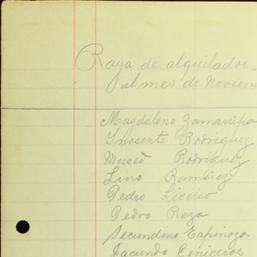 Raya de alquilador
al mes de Noviem
Magdaleno Zamarripa
Inosente Rodriguez
Museo Rodriguez
Lino Ramirez
Pedro Liceiro
Pedro Reza
Secundino Espinoza
Facundo Ceniceros